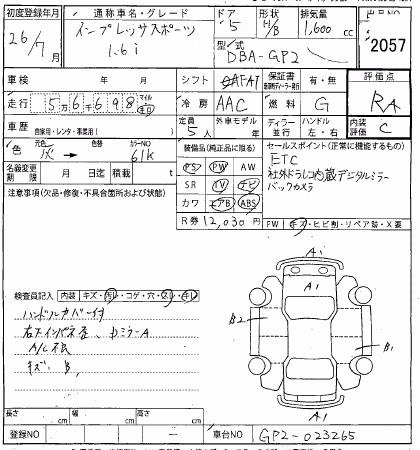 初度登録年月 通称車名・グレード ドア 形状 排気量 出品NO
26/7月 インプレッサスポーツ 5 H/B 1,600 cc
1.6i 型式 DBA-GP2 2057
車検 年 月 シフト FAT 保証書 有・無 評価点
走行 56698 マイル キロ 冷房 AAC 燃料 G RA
車歴 自家用・レンタ・事業用( ) 定員 5人 外車モデル 年 ディーラー 並行 ハンドル 左・右 内装評価 C
色 元色 灰 → 色替 カラーNO 61K 装備品(純正品に限る) セールスポイント(正常に機能するもの)
名義変更期限 月 日迄 積載 t PS PW AW ETC
注意事項(欠品・修復・不具合箇所および状態) SR TV ナビ 社外ドラレコ内蔵デジタルミラー
カワ エアB ABS バックカメラ
R券 12,030円 FW キズ・ヒビ割・リペア跡・X要
A1
A1
検査員記入 内装 キズ・汚レ・コゲ・穴・スレ・キレ
ハンドルカバー付 B2
右下インパネ歪 ミラーA
A/C不良 B1
キズ B
A1
長さ cm 幅 cm 高さ cm
登録NO 車台NO GP2-023265